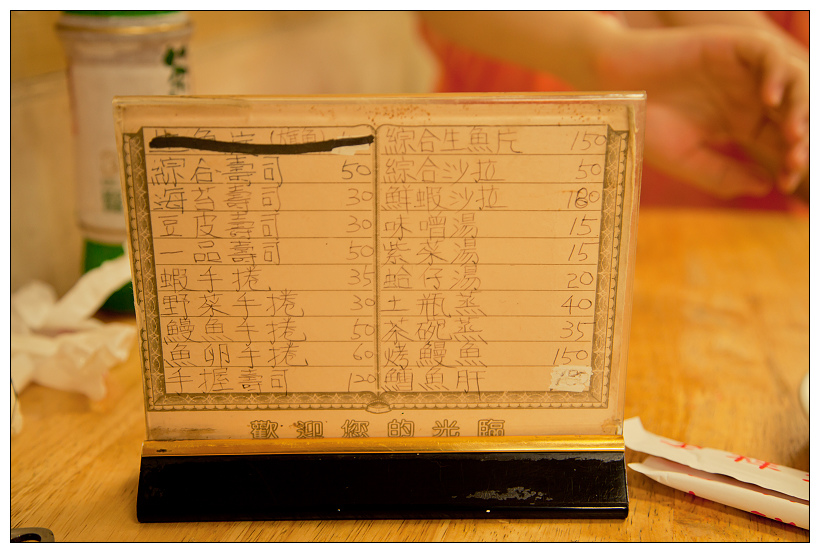 綜合壽司 50
海苔壽司 30
豆皮壽司 30
一品壽司 50
蝦手捲 35
野菜手捲 30
鰻魚手捲 50
魚卵手捲 60
手握壽司 120
綜合生魚片 150
綜合沙拉 50
鮮蝦沙拉
味噌湯 15
紫菜湯 15
蛤仔湯 20
土瓶蒸 40
茶碗蒸 35
烤鰻魚 150
魚肝
歡迎您的光臨